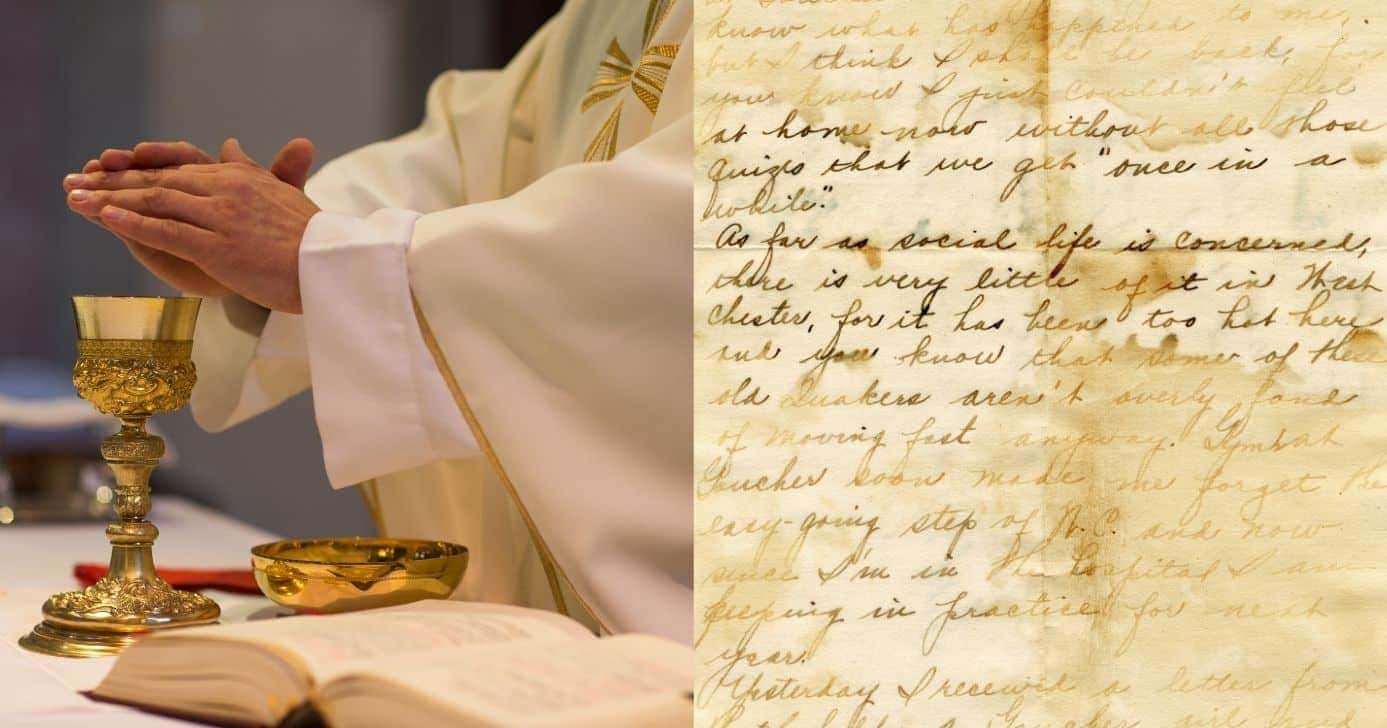 know what has happened to me,
but I think I should be back, for
you know I just couldn't feel
at home now without all those
quizes that we get "once in a
while."
As far as social life is concerned,
there is very little of it in West
Chester, for it has been too hot here
and you know that some of these
old Quakers aren't overly fond
of moving fast anyway. Gymbat
Goucher soon made me forget the
easy-going step of W.C. and now
since I'm in the hospital I am
keeping in practice for next
year.
Yesterday I received a letter from
a Goucher